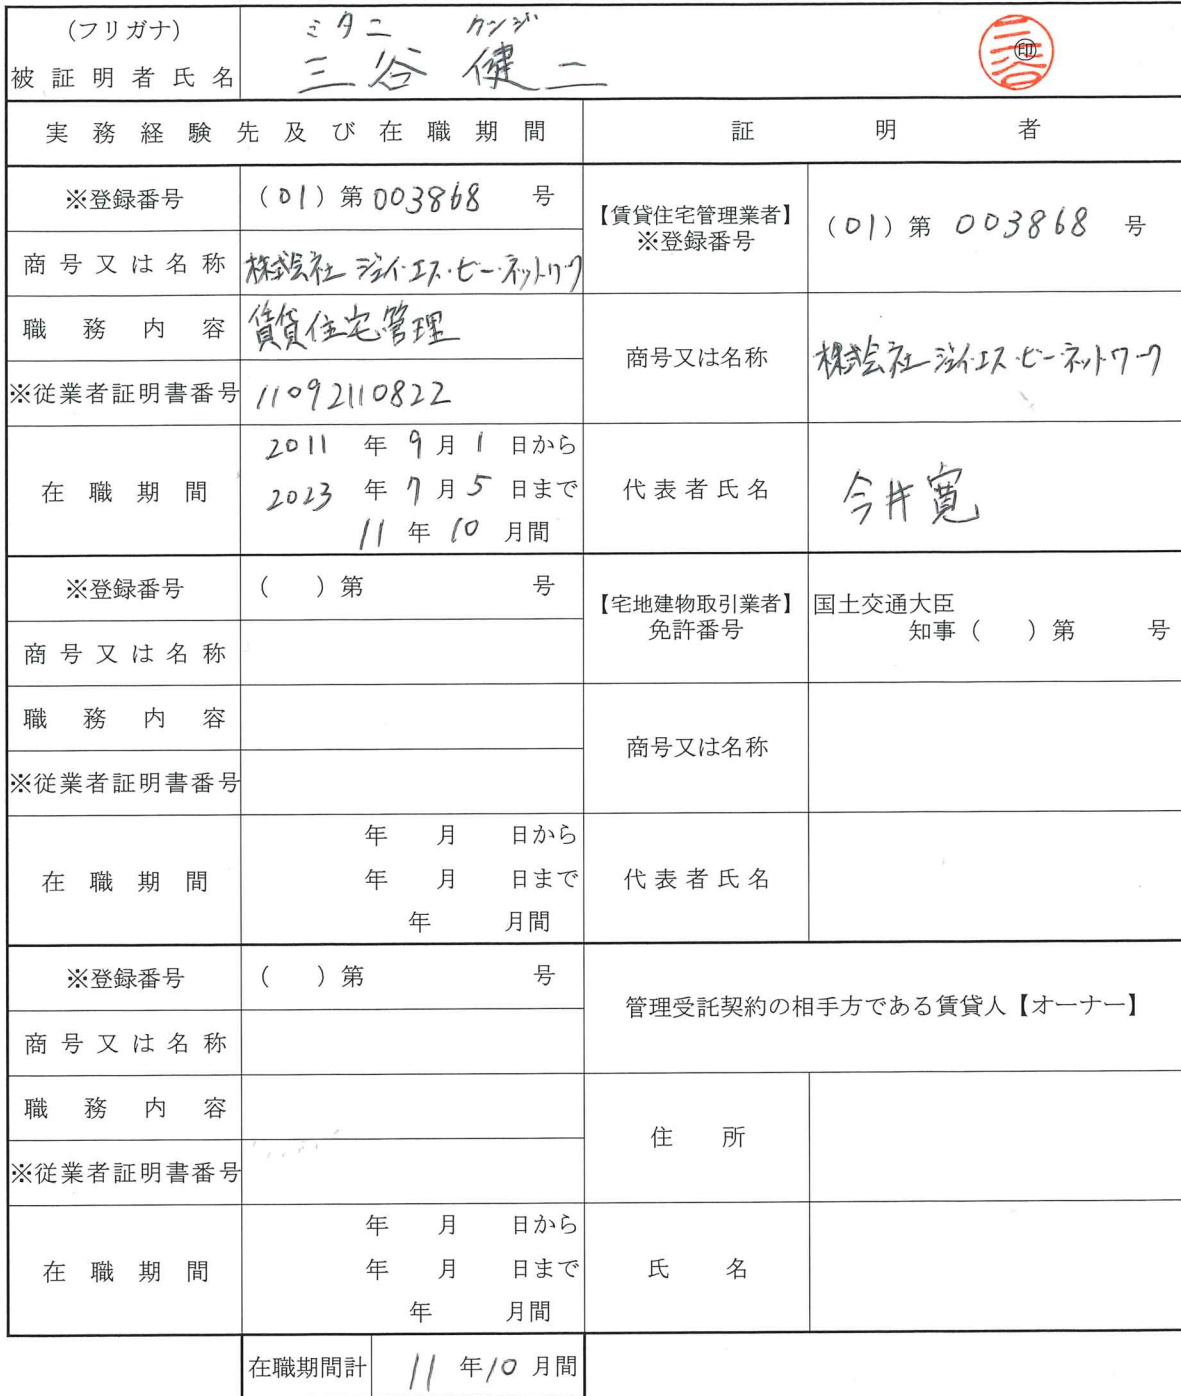 (フリガナ) ミタニ ケンジ
被証明者氏名 三谷 健二 ㊞ 三谷
実務経験先及び在職期間 証明者
※登録番号 (01)第003868号
商号又は名称 株式会社 ジェイ・エス・ビー・ネットワーク
職務内容 賃貸住宅管理
※従業者証明書番号 11092110822
在職期間 2011年9月1日から
2023年7月5日まで
11年10月間
【賃貸住宅管理業者】
※登録番号 (01)第 003868 号
商号又は名称 株式会社 ジェイ・エス・ビー・ネットワーク
代表者氏名 今井寛
※登録番号 ( )第 号
商号又は名称
職務内容
※従業者証明書番号
在職期間 年 月 日から
年 月 日まで
年 月間
【宅地建物取引業者】 国土交通大臣
免許番号 知事( )第 号
商号又は名称
代表者氏名
※登録番号 ( )第 号
商号又は名称
職務内容
※従業者証明書番号
在職期間 年 月 日から
年 月 日まで
年 月間
管理受託契約の相手方である賃貸人【オーナー】
住所
氏名
在職期間計 11年10月間